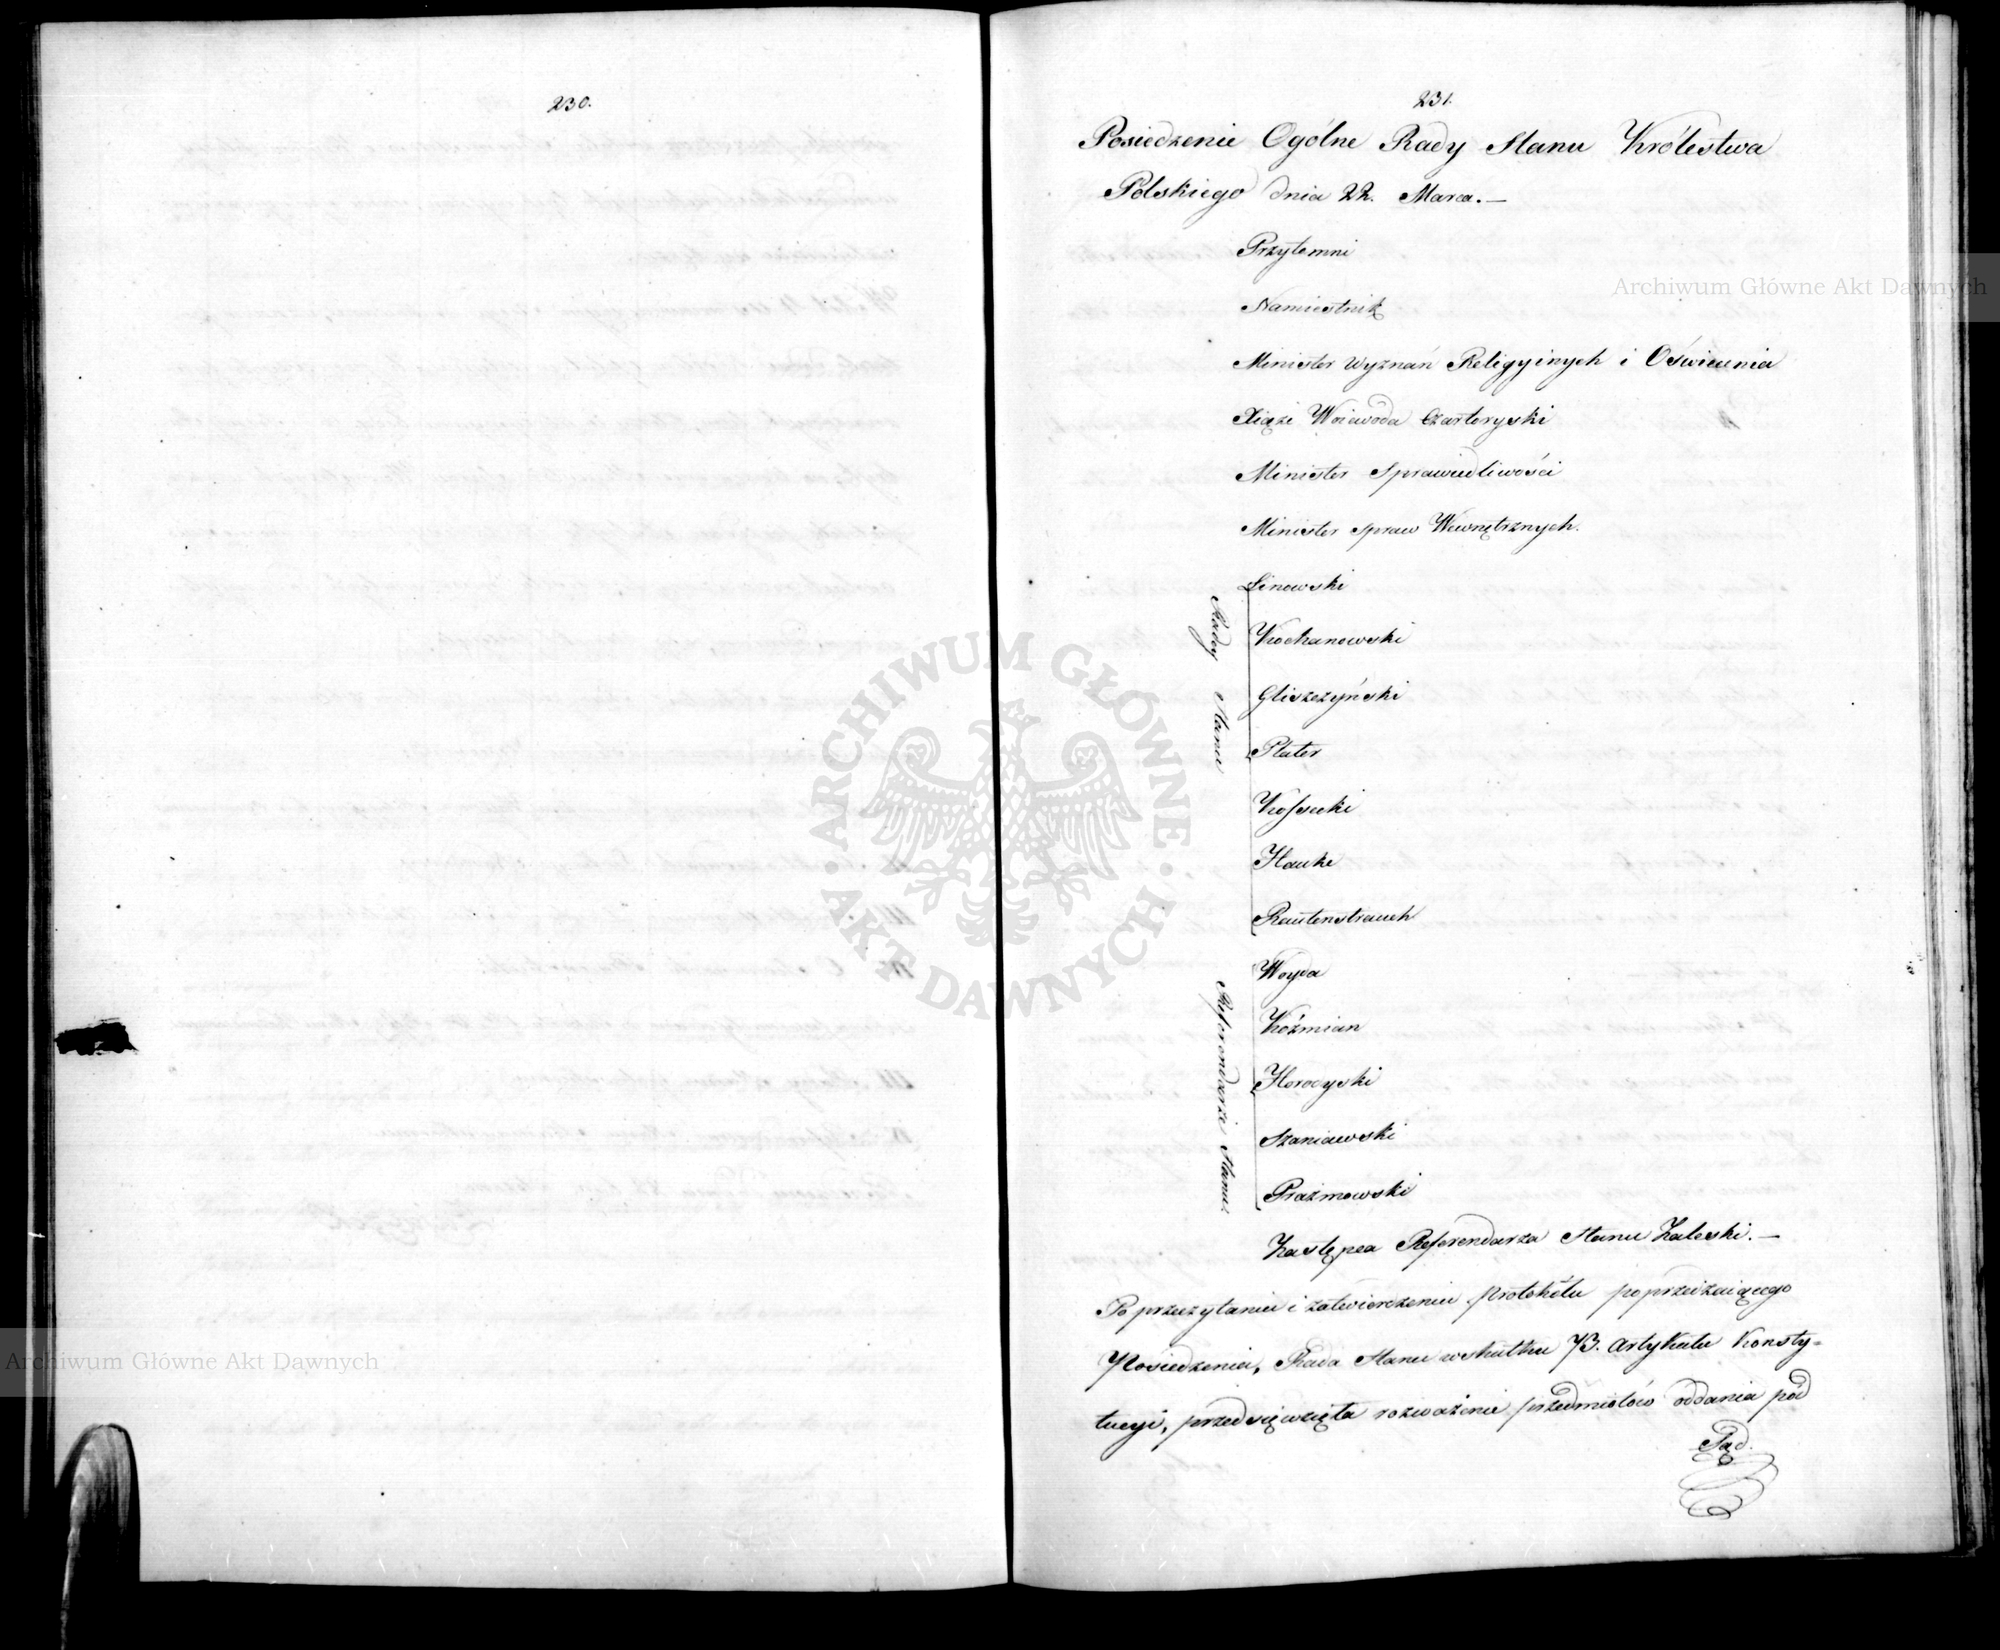 230.
231.
Posiedzenie Ogólne Rady Stanu Królestwa
Polskiego dnia 22. Marca. —
Przytomni
Namiestnik
Minister Wyznań Religyinych i Oświecenia
Xiąże Woiewoda Czartoryski
Minister Sprawiedliwości
Minister Spraw Wewnętrznych.
Radcy Stanu
Linowski
Kochanowski
Gliszczyński
Plater
Kossecki
Hauke
Rautenstrauch
Referendarze Stanu
Woyda
Koźmian
Horodyski
Szaniawski
Prażmowski
Zastępca Referendarza Stanu Zaleski. —
Po przeczytaniu i zatwierdzeniu protokółu poprzedzaiącego
Posiedzenia, Rada Stanu wskutku 73. Artykułu Konsty-
tucyi, przedsięwzięła rozważenie przedmiotów oddania pód
Sąd.
Archiwum Główne Akt Dawnych
Archiwum Główne Akt Dawnych
ARCHIWUM GŁÓWNE AKT DAWNYCH